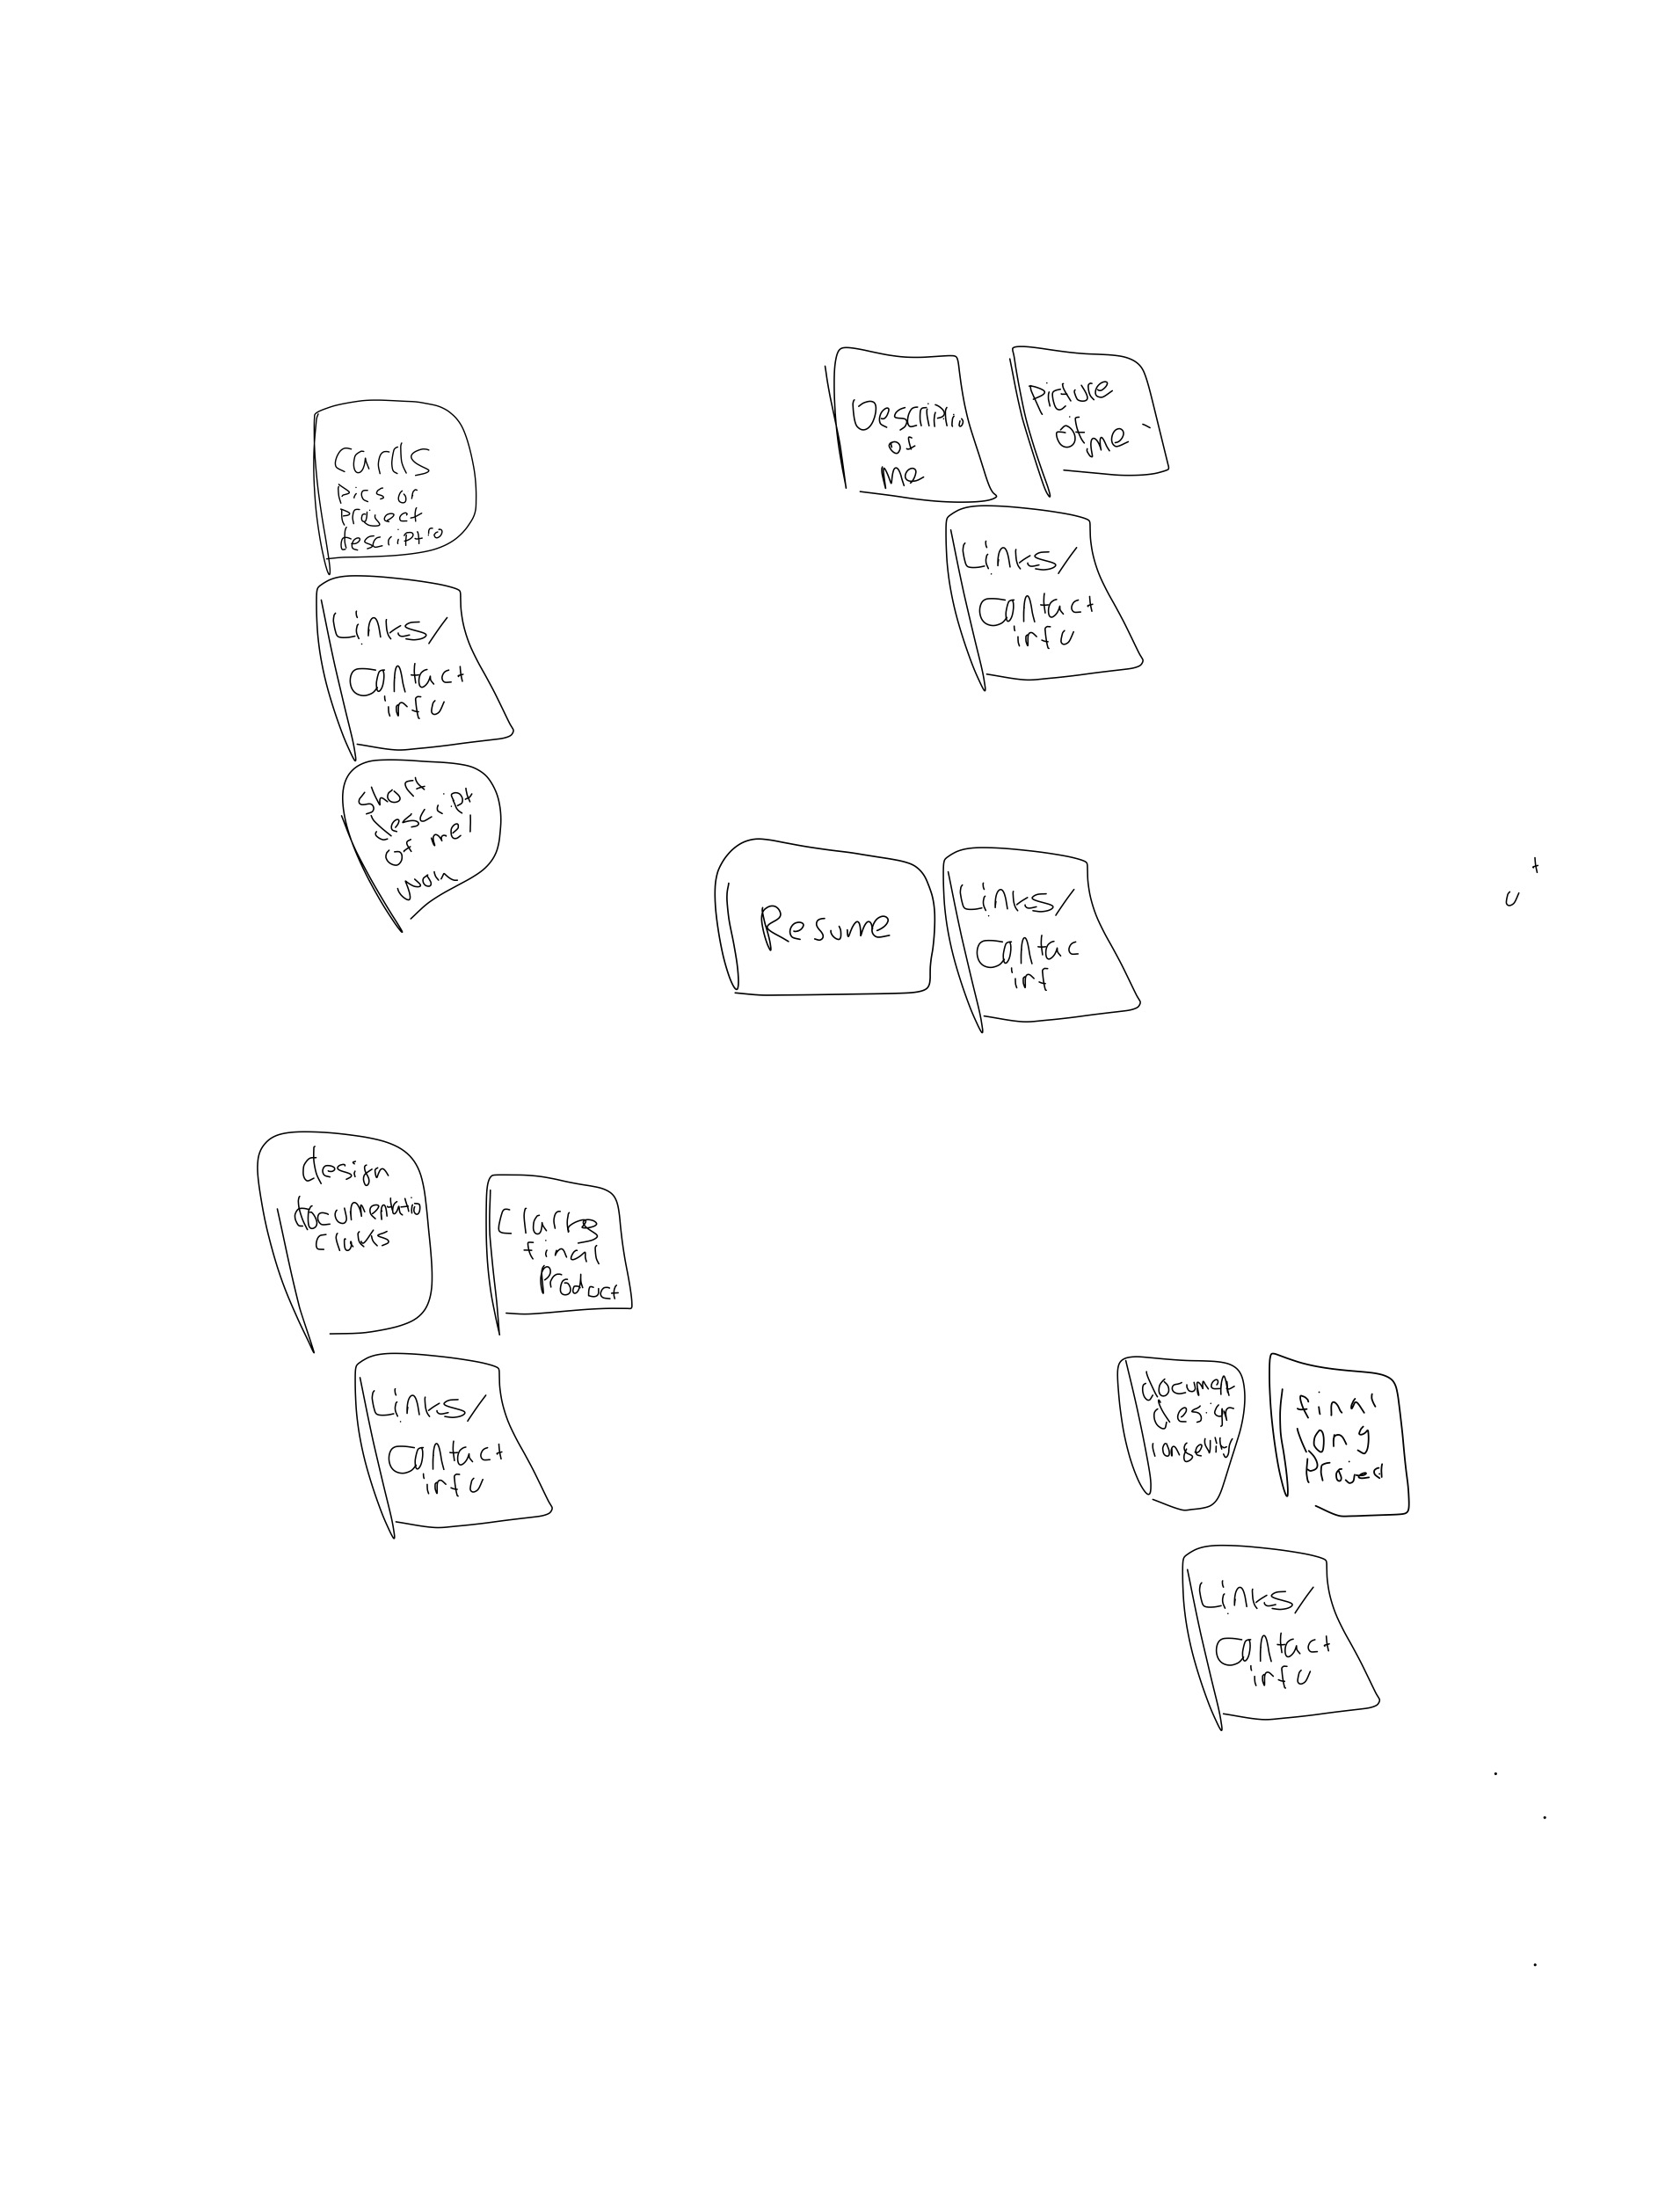 Cards
Pics or
Project
descriptio
Links/
Contact
info
Short
descript
of me/
Descriptio
of
Me
Picture
of me
Links/
Contact
info
Resume
Links/
Contac
inf
design
documentatio
final
Product
Links/
Contact
info
document
design
longevity
final
long
Project
Links/
Contact
info